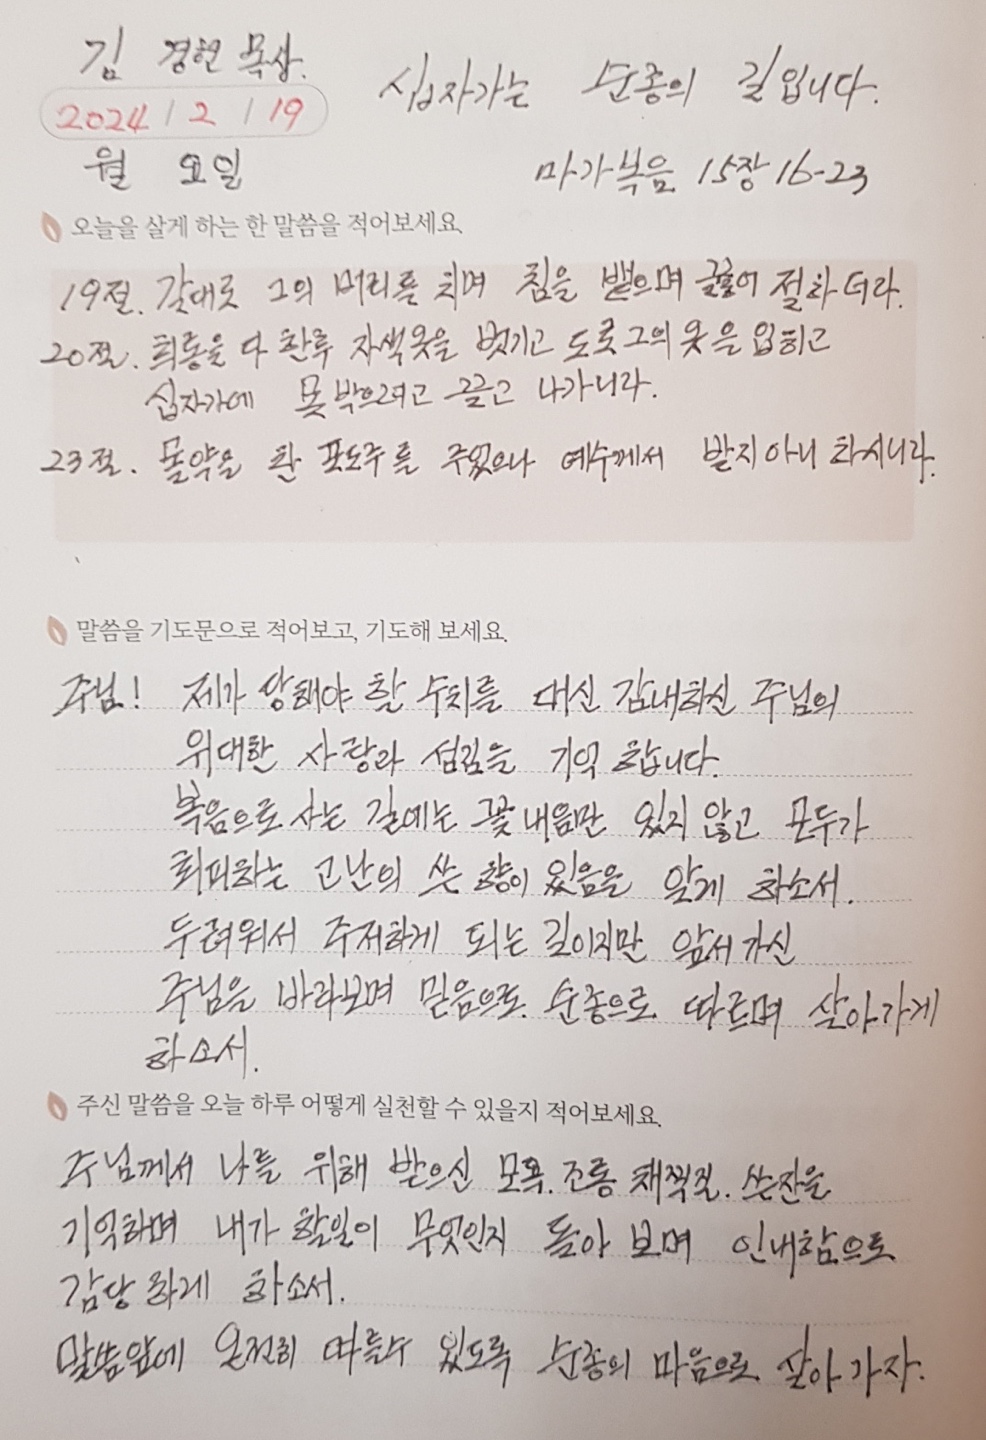 김 경현 묵상.
십자가는 순종의 길입니다.
2024 / 2 / 19
월 요일
마가복음 15장 16-23
오늘을 살게 하는 한 말씀을 적어보세요.
19절. 갈대로 그의 머리를 치며 침을 뱉으며 꿇어 절하더라.
20절. 희롱을 다 한후 자색옷을 벗기고 도로 그의 옷을 입히고
십자가에 못 박으려고 끌고 나가니라.
23절. 몰약을 탄 포도주를 주었으나 예수께서 받지 아니 하시니라.
말씀을 기도문으로 적어보고, 기도해 보세요.
주님! 제가 당해야 할 수치를 대신 감내하신 주님의
위대한 사랑과 섬김을 기억 합니다.
복음으로 사는 길에는 꽃 내음만 있지 않고 모두가
회피하는 고난의 쓴 향이 있음을 알게 하소서.
두려워서 주저하게 되는 길이지만 앞서 가신
주님을 바라보며 믿음으로. 순종으로 따르며 살아가게
하소서.
주신 말씀을 오늘 하루 어떻게 실천할 수 있을지 적어보세요.
주님께서 나를 위해 받으신 모욕. 조롱 채찍질. 쓴잔을
기억하며 내가 할일이 무엇인지 돌아 보며 인내함으로
감당 하게 하소서.
말씀앞에 온전히 따를수 있도록 순종의 마음으로 살아 가자.